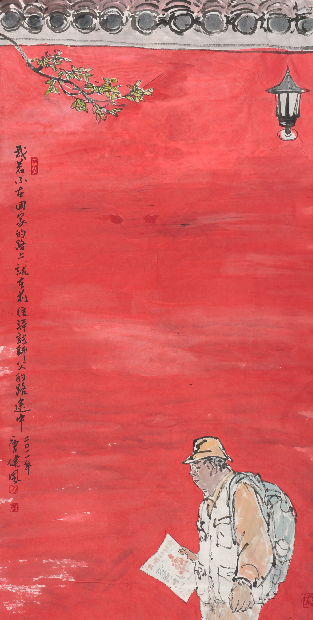 我若不在回家的路上就在前往尋訪師父的路途中
二〇一一年
曹健鳳